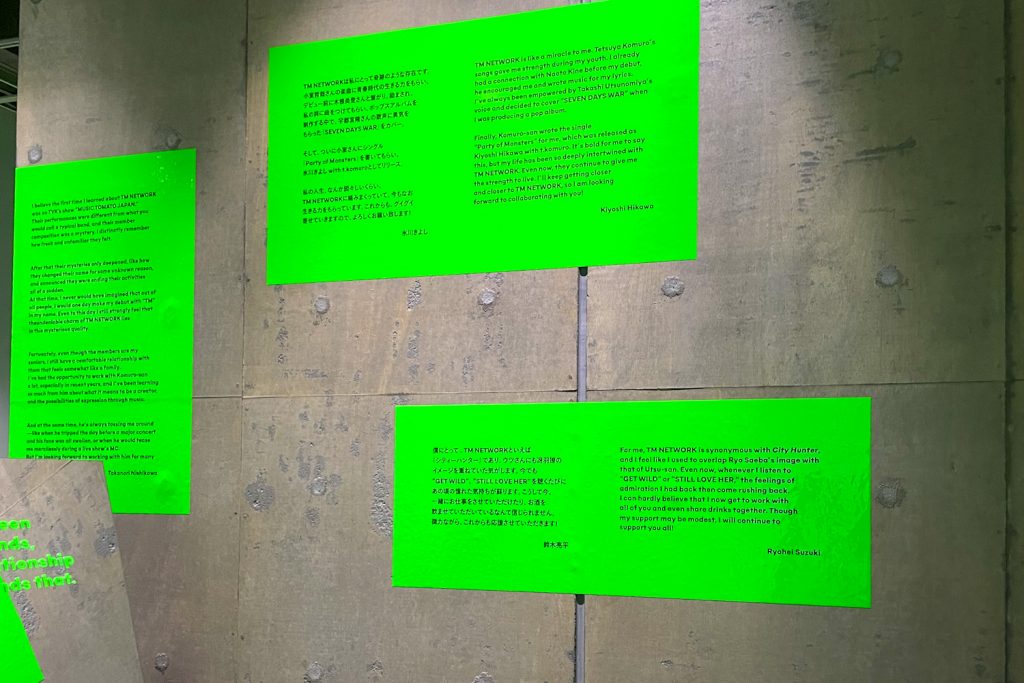 I believe the first time I learned about TM NETWORK
was on TVK's show "MUSIC TOMATO JAPAN."
Their performances were different from what you
would call a typical band, and their member
composition was a mystery. I distinctly remember
how fresh and unfamiliar they felt.
After that their mysteries only deepened, like how
they changed their name for some unknown reason,
and announced they were ending their activities
all of a sudden.
At that time, I never would have imagined that out of
all people, I would one day make my debut with "TM"
in my name. Even to this day I still strongly feel that
the undeniable charm of TM NETWORK lies
in this mysterious quality.
Fortunately, even though the members are my
seniors, I still have a comfortable relationship with
them that feels somewhat like a family.
I've had the opportunity to work with Komuro-san
a lot, especially in recent years, and I've been learning
so much from him about what it means to be a creator,
and the possibilities of expression through music.
And at the same time, he's always tossing me around
—like when he tripped the day before a major concert
and his face was all swollen, or when he would tease
me mercilessly during a live show's MC.
But I'm looking forward to working with him for many
Takanori Nishikawa
TM NETWORKは私にとって奇跡のような存在です。
小室哲哉さんの楽曲に青春時代の生きる力をもらい、
デビュー前に木根尚登さんと繋がり、励まされ、
私の詞に曲をつけてもらい、ポップスアルバムを
制作する中で、宇都宮隆さんの歌声に勇気を
もらった「SEVEN DAYS WAR」をカバー。
そして、ついに小室さんにシングル
「Party of Monsters」を書いてもらい、
氷川きよし with t.komuroとしてリリース。
私の人生、なんか図々しいくらい、
TM NETWORKに絡みまくっていて、今もなお
生きる力をもらっています。これからも、グイグイ
寄せていきますので、よろしくお願い致します!
氷川きよし
TM NETWORK is like a miracle to me. Tetsuya Komuro's
songs gave me strength during my youth. I already
had a connection with Naoto Kine before my debut,
he encouraged me and wrote music for my lyrics.
I've always been empowered by Takashi Utsunomiya's
voice and decided to cover "SEVEN DAYS WAR" when
I was producing a pop album.
Finally, Komuro-san wrote the single
"Party of Monsters" for me, which was released as
Kiyoshi Hikawa with t.komuro. It's bold for me to say
this, but my life has been so deeply intertwined with
TM NETWORK. Even now, they continue to give me
the strength to live. I'll keep getting closer
and closer to TM NETWORK, so I am looking
forward to collaborating with you!
Kiyoshi Hikawa
僕にとって、TM NETWORKといえば
「シティーハンター」であり、ウツさんにも冴羽獠の
イメージを重ねていた気がします。今でも
"GET WILD"、"STILL LOVE HER"を聴くたびに
あの頃の憧れた気持ちが蘇ります。こうして今、
一緒にお仕事をさせていただけたり、お酒を
飲ませていただいているなんて信じられません。
微力ながら、これからも応援させていただきます!
鈴木亮平
For me, TM NETWORK is synonymous with City Hunter,
and I feel like I used to overlap Ryo Saeba's image with
that of Utsu-san. Even now, whenever I listen to
"GET WILD" or "STILL LOVE HER," the feelings of
admiration I had back then come rushing back.
I can hardly believe that I now get to work with
all of you and even share drinks together. Though
my support may be modest, I will continue to
support you all!
Ryohei Suzuki
een
nds,
tionship
nds that.